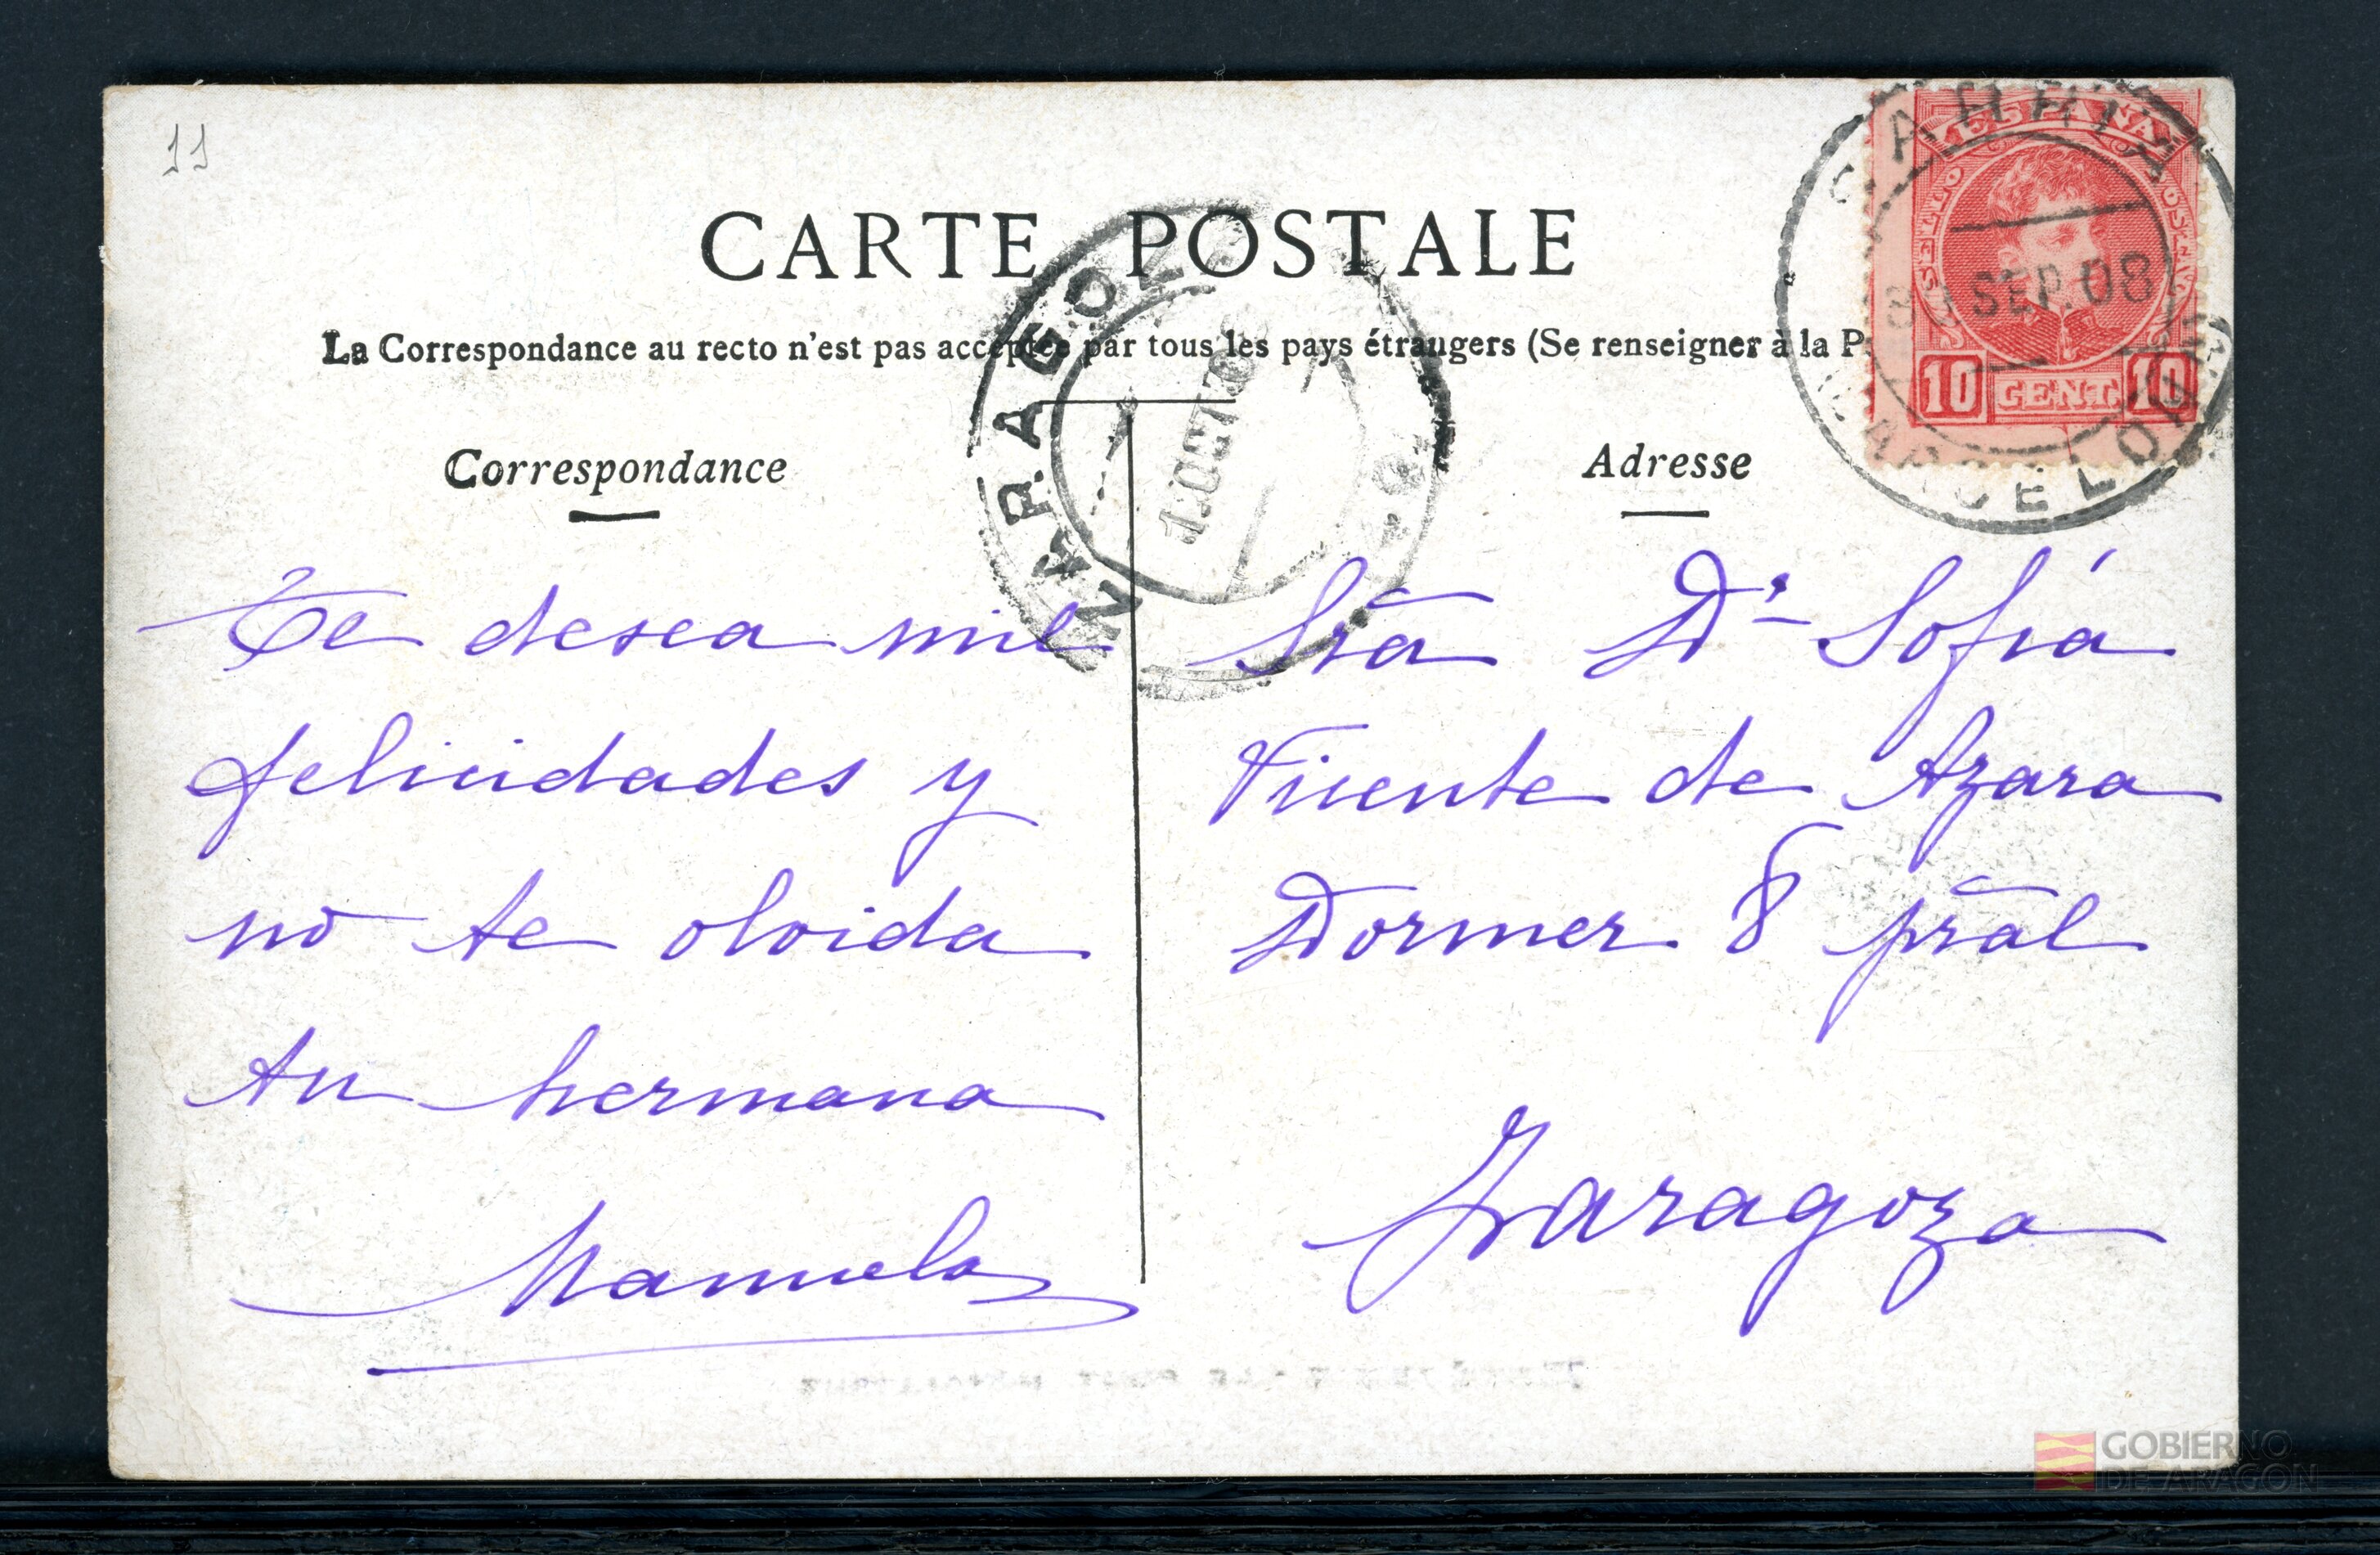 11
CARTE POSTALE
La Correspondance au recto n'est pas acceptée par tous les pays étrangers (Se renseigner à la P
Correspondance
Te desea mil
felicidades y
no te olvida
tu hermana
Manuela
Adresse
Sra Dª Sofía
Vicente de Azara
Dormer 8 pral
Zaragoza
ESPAÑA
10 CENT. 10
SARRIA
SEP. 08
BARCELONA
ZARAGOZA
1.OCT.
GOBIERNO
DE ARAGON